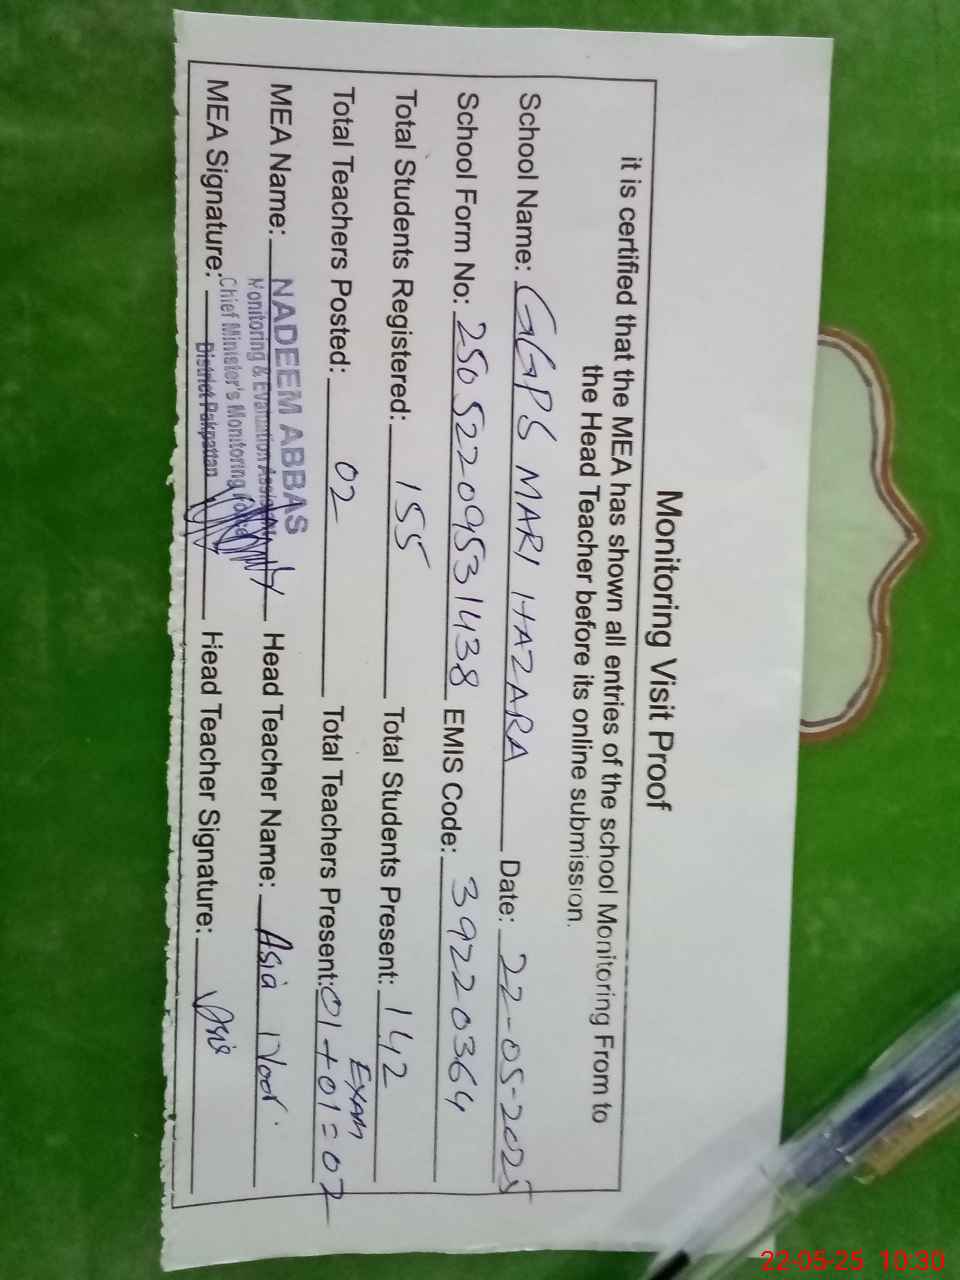 Monitoring Visit Proof
it is certified that the MEA has shown all entries of the school Monitoring From to
the Head Teacher before its online submission.
School Name: GGPS MARI HAZARA Date: 22-05-2025
School Form No: 25052209531438 EMIS Code: 39220364
Total Students Registered: 155 Total Students Present: 142
Exam
Total Teachers Posted: 02 Total Teachers Present: 01+01=02
MEA Name: NADEEM ABBAS Head Teacher Name: Asia Noor
Monitoring & Evaluation Assistant
Chief Minister's Monitoring Force
MEA Signature: District Pakpattan Head Teacher Signature: Asia
22-05-25 10:30